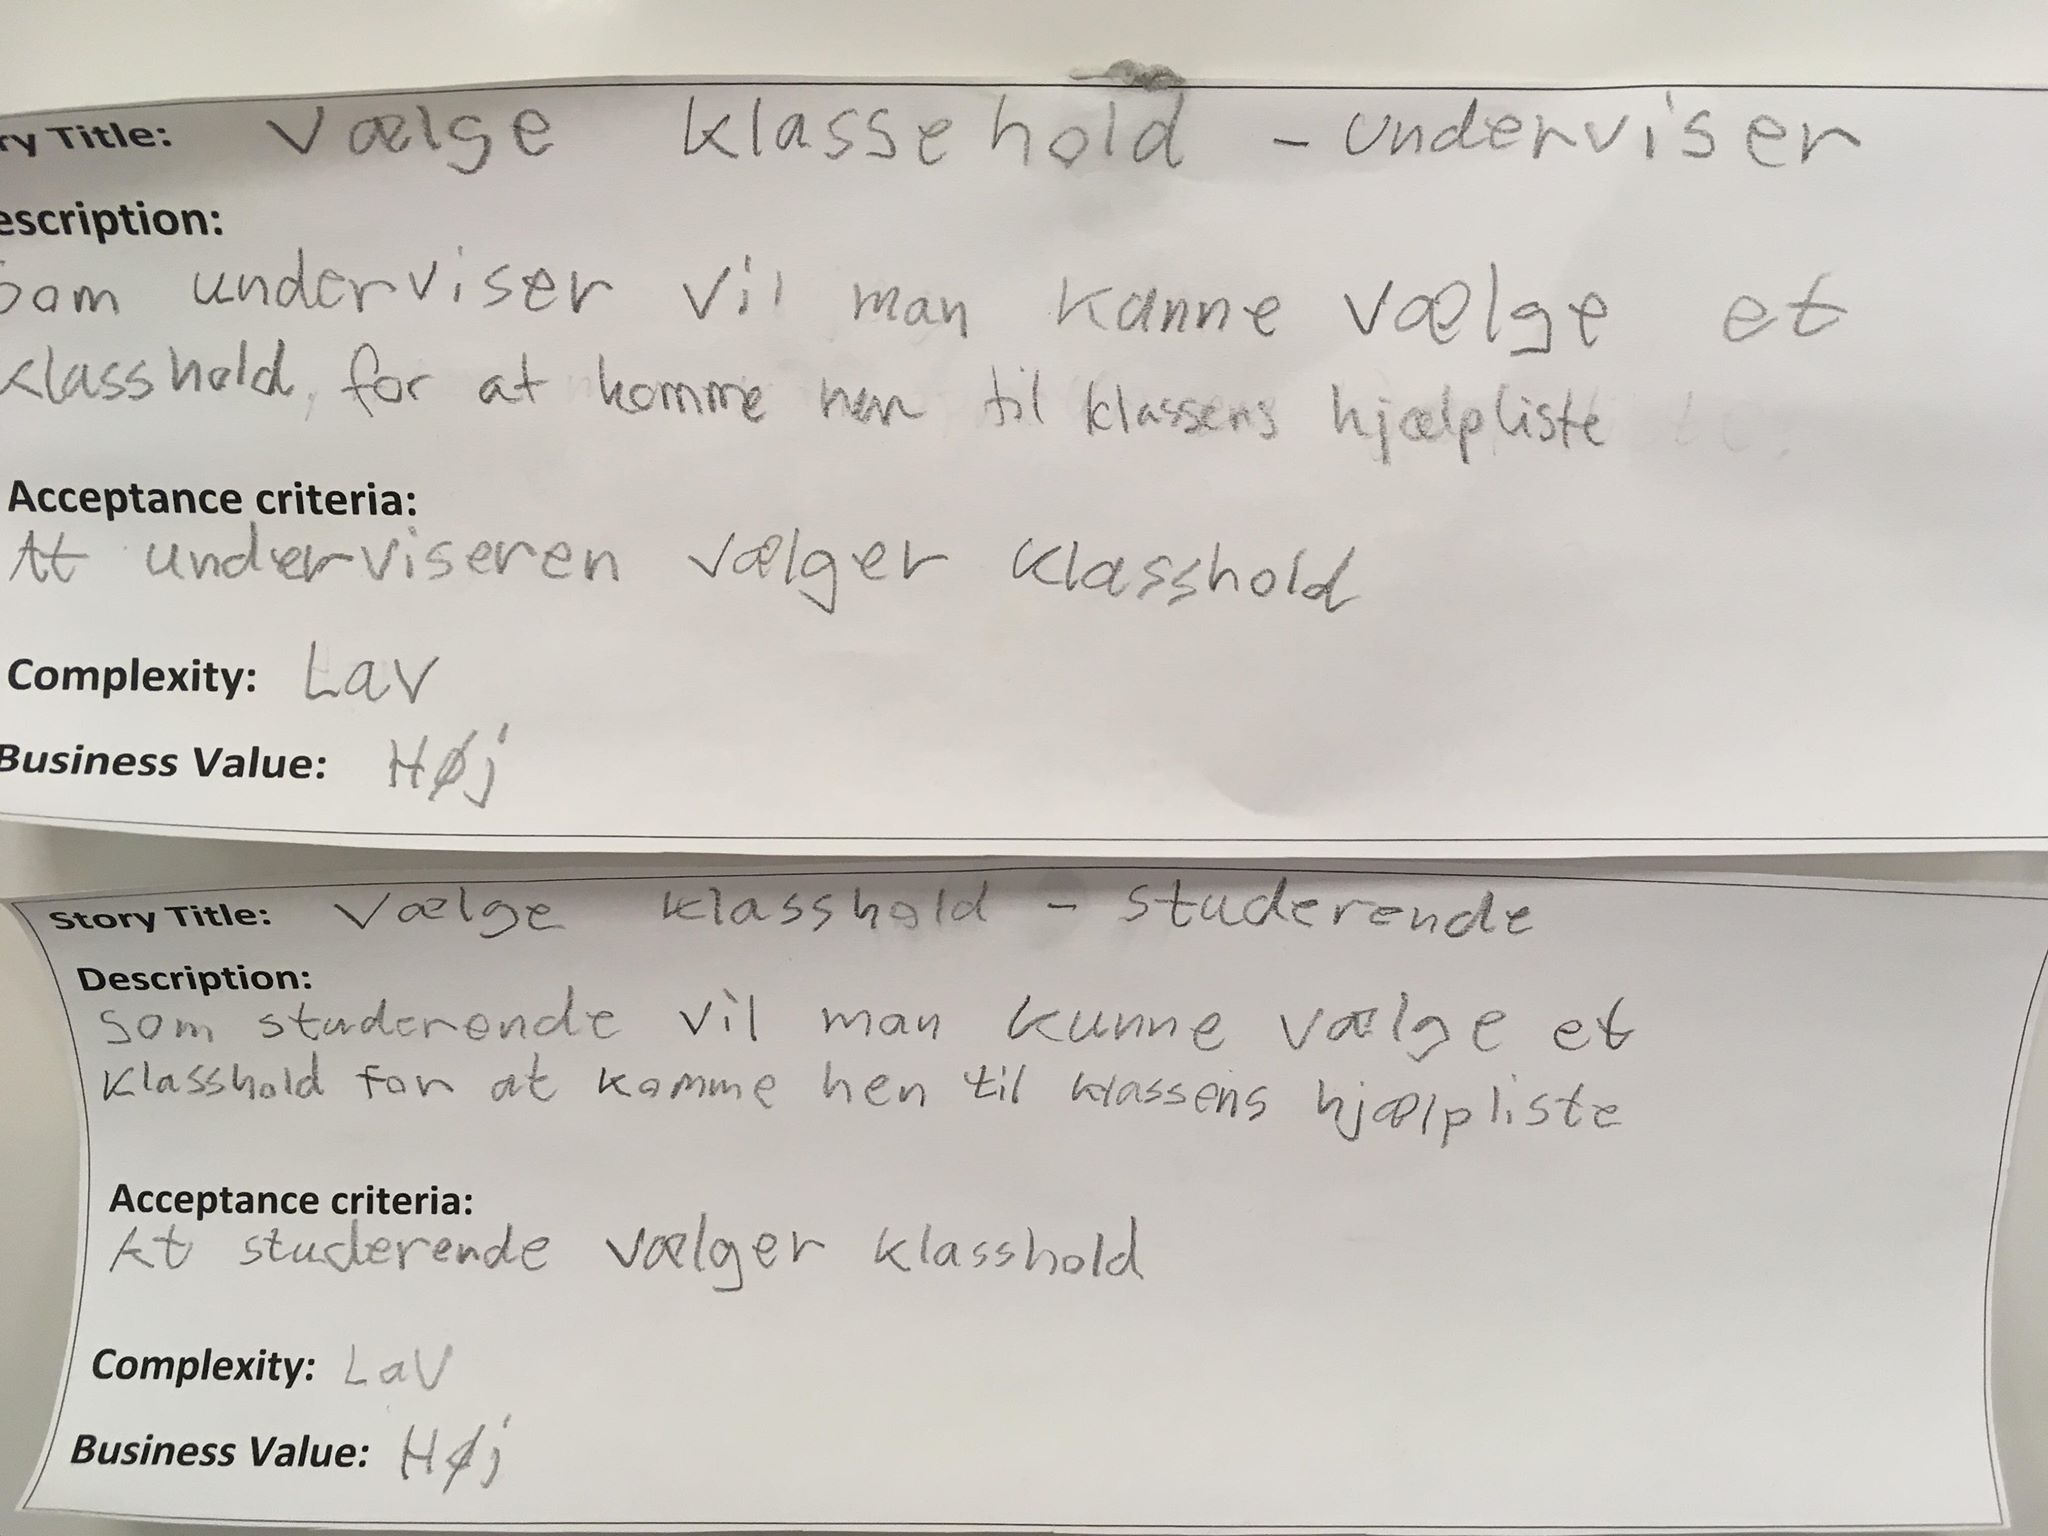 ry Title: Vælge klassehold - underviser
escription:
Som underviser vil man kunne vælge et
klasshold, for at komme hen til klassens hjælpliste
Acceptance criteria:
At underviseren vælger klasshold
Complexity: Lav
Business Value: Høj
Story Title: Vælge klasshold - studerende
Description:
Som studerende vil man kunne vælge et
klasshold for at komme hen til klassens hjælpliste
Acceptance criteria:
At studerende vælger klasshold
Complexity: Lav
Business Value: Høj